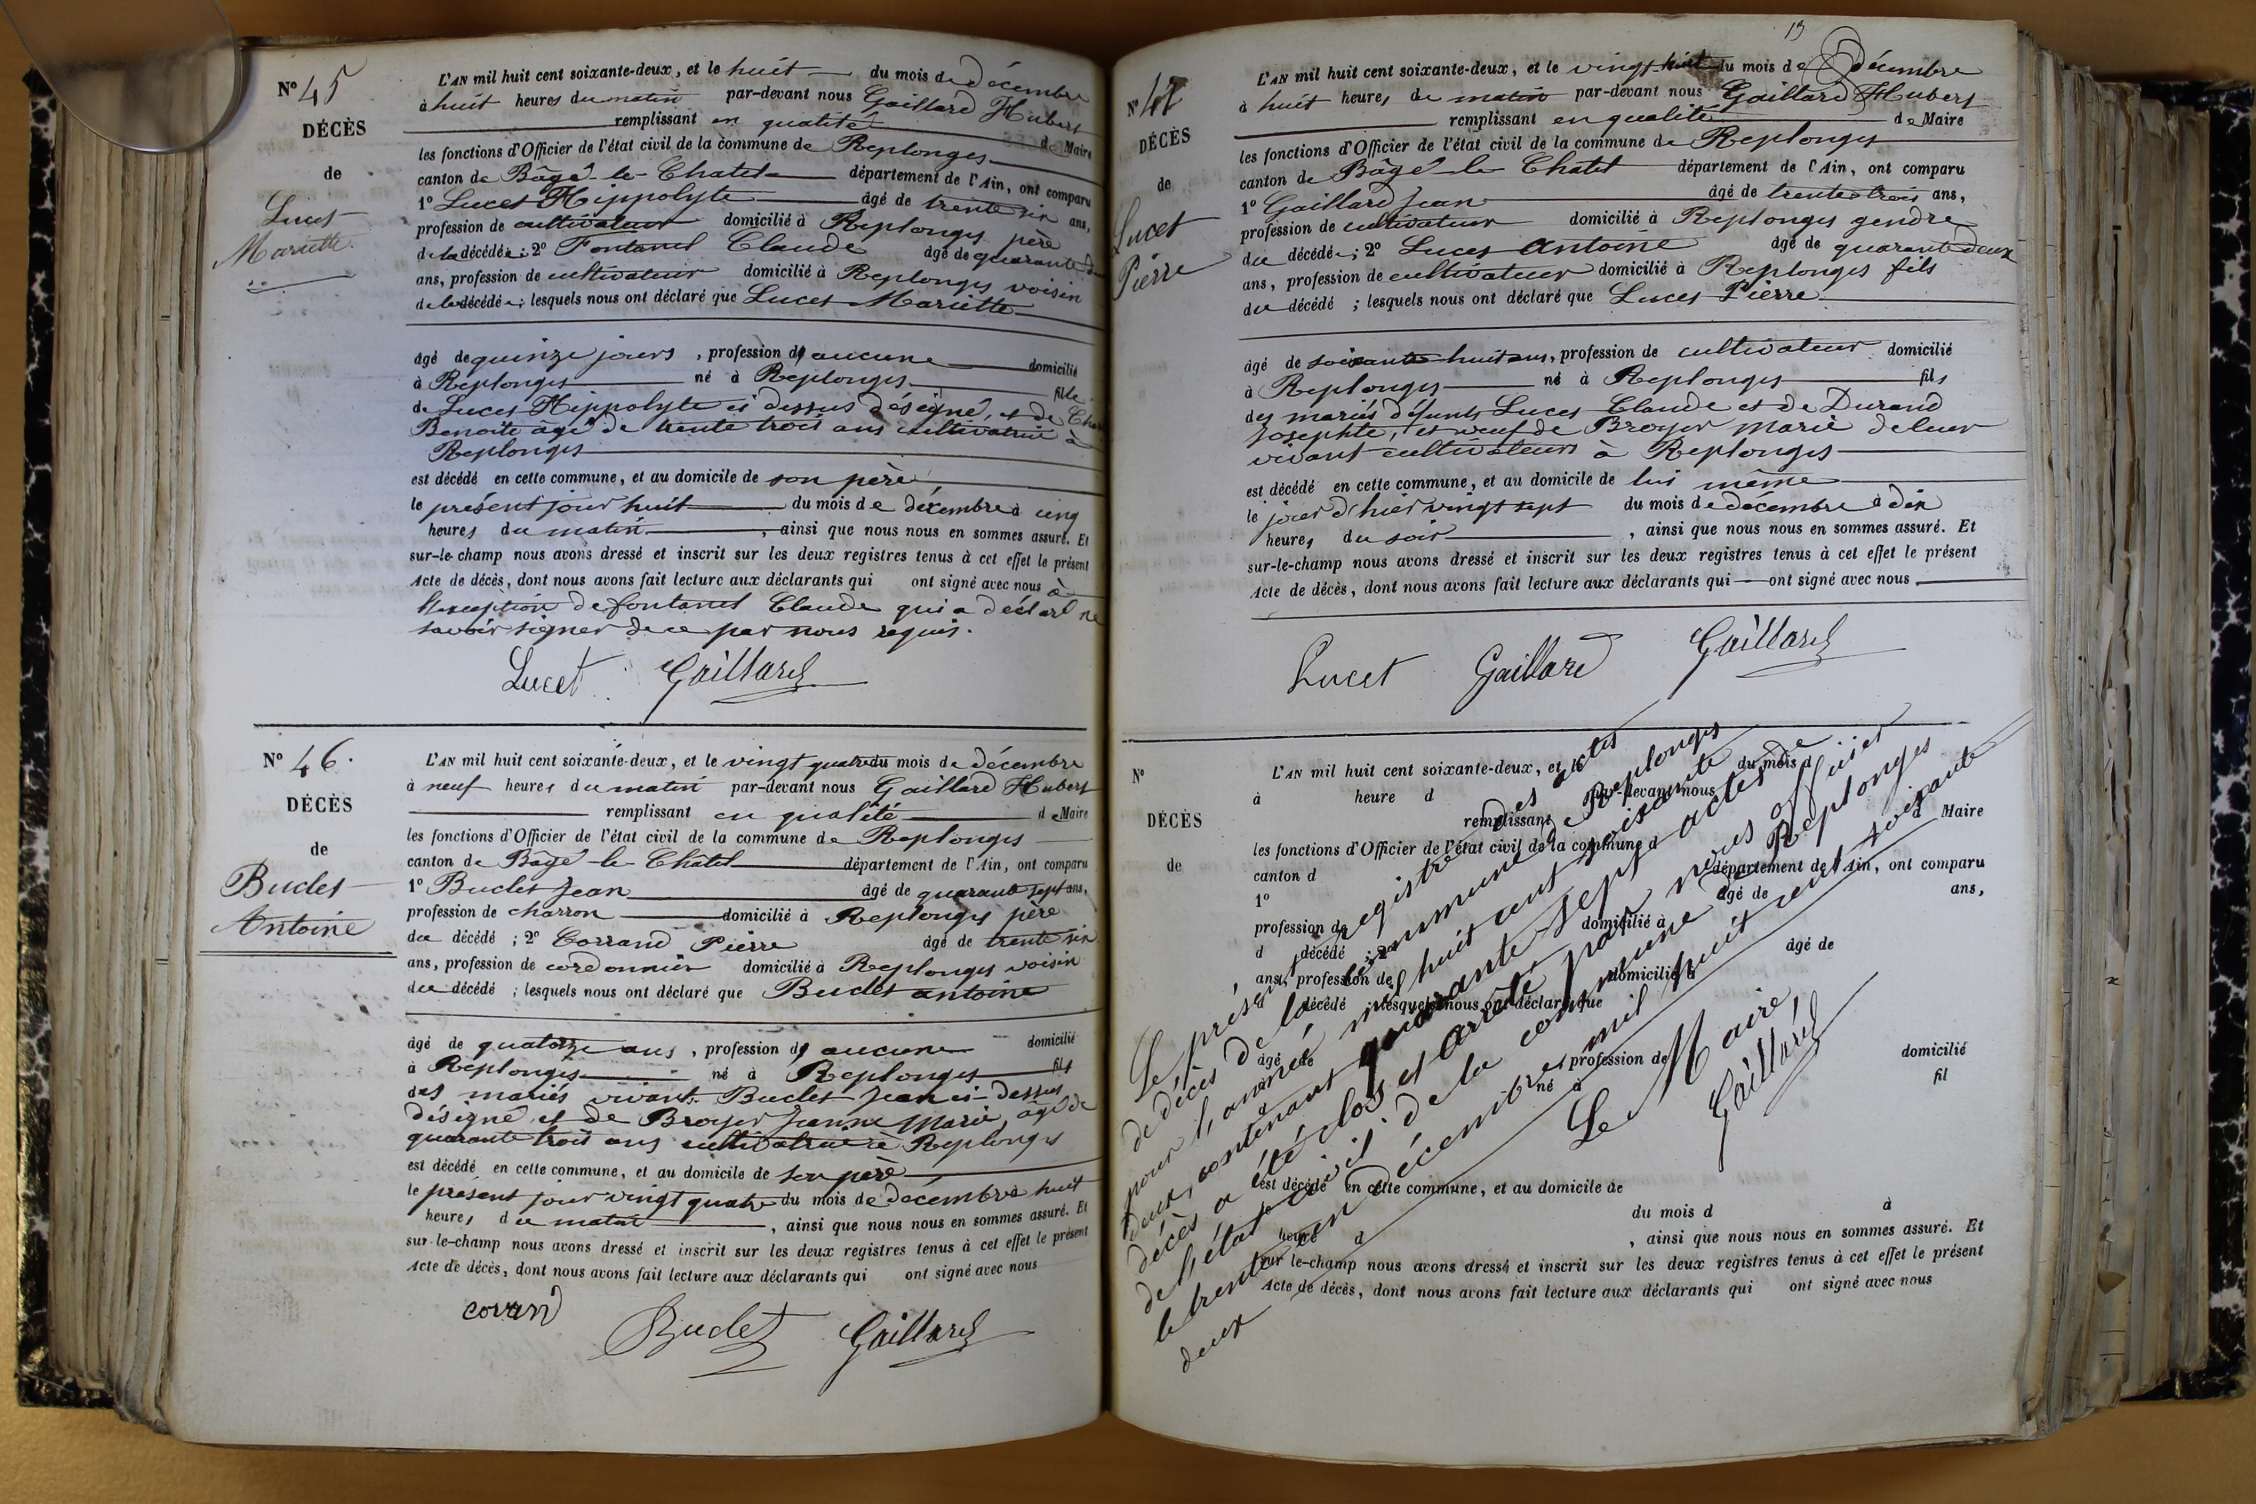 N° 45
DÉCÈS
de
Lucet
Mariette
L'AN mil huit cent soixante-deux, et le huit du mois de décembre
à huit heures du matin par-devant nous Gaillard Hubert
remplissant en qualité de Maire
les fonctions d'Officier de l'état civil de la commune de Replonges
canton de Bâgé-le-Chatel département de l'Ain, ont comparu
1° Lucet Hippolyte âgé de trente six ans,
profession de cultivateur domicilié à Replonges père
de la décédée; 2° Fontanel Claude âgé de quarante
ans, profession de cultivateur domicilié à Replonges voisin
de la décédée; lesquels nous ont déclaré que Lucet Mariette
âgé de quinze jours, profession d' aucune domicilié
à Replonges né à Replonges fille
de Lucet Hippolyte ci dessus désigné, et de
Benoite âgée de trente trois ans cultivatrice à
Replonges
est décédé en cette commune, et au domicile de son père
le présent jour huit du mois de décembre à cinq
heures du matin, ainsi que nous nous en sommes assuré. Et
sur-le-champ nous avons dressé et inscrit sur les deux registres tenus à cet effet le présent
Acte de décès, dont nous avons fait lecture aux déclarants qui ont signé avec nous à
l'exception de fontanel Claude qui a déclaré ne
savoir signer de ce par nous requis.
Lucet Gaillard
N° 46.
DÉCÈS
de
Buclet
Antoine
L'AN mil huit cent soixante-deux, et le vingt quatre du mois de décembre
à neuf heures du matin par-devant nous Gaillard Hubert
remplissant en qualité de Maire
les fonctions d'Officier de l'état civil de la commune de Replonges
canton de Bâgé-le-Chatel département de l'Ain, ont comparu
1° Buclet Jean âgé de quarante sept ans,
profession de charron domicilié à Replonges père
du décédé; 2° Corrand Pierre âgé de trente six
ans, profession de cordonnier domicilié à Replonges voisin
du décédé; lesquels nous ont déclaré que Buclet antoine
âgé de quatorze ans, profession d' aucune domicilié
à Replonges né à Replonges fils
des mariés vivant Buclet Jean ci-dessus
désigné et de Broyer Jeanne Marie, âgée de
quarante trois ans cultivatrice à Replonges
est décédé en cette commune, et au domicile de son père
le présent jour vingt quatre du mois de décembre à huit
heures du matin, ainsi que nous nous en sommes assuré. Et
sur-le-champ nous avons dressé et inscrit sur les deux registres tenus à cet effet le présent
Acte de décès, dont nous avons fait lecture aux déclarants qui ont signé avec nous
corrand Buclet Gaillard
N° 47
DÉCÈS
de
Lucet
Pierre
L'AN mil huit cent soixante-deux, et le vingt huit du mois de décembre
à huit heures de matin par-devant nous Gaillard Hubert
remplissant en qualité de Maire
les fonctions d'Officier de l'état civil de la commune de Replonges
canton de Bâgé-le-Chatel département de l'Ain, ont comparu
1° Gaillard Jean âgé de trente trois ans,
profession de cultivateur domicilié à Replonges gendre
du décédé; 2° Lucet antoine âgé de quarante deux
ans, profession de cultivateur domicilié à Replonges fils
du décédé; lesquels nous ont déclaré que Lucet Pierre
âgé de soixante huit ans, profession de cultivateur domicilié
à Replonges né à Replonges fils
des mariés défunts Lucet Claude et de Durand
Josephte, et veuf de Broyer Marie de leur
vivant cultivateurs à Replonges
est décédé en cette commune, et au domicile de lui même
le jour d'hier vingt sept du mois de décembre à dix
heures du soir, ainsi que nous nous en sommes assuré. Et
sur-le-champ nous avons dressé et inscrit sur les deux registres tenus à cet effet le présent
Acte de décès, dont nous avons fait lecture aux déclarants qui ont signé avec nous
Lucet Gaillard Gaillard
N°
DÉCÈS
de
L'AN mil huit cent soixante-deux, et le du mois d
à heure d par-devant nous
remplissant d Maire
les fonctions d'Officier de l'état civil de la commune d
canton d département de l'Ain, ont comparu
1° âgé de ans,
profession de domicilié à
d décédé; 2° âgé de
ans, profession de domicilié à
d décédé; lesquels nous ont déclaré que
âgé de profession de domicilié
à né à fil
est décédé en cette commune, et au domicile de
du mois d à
heure d, ainsi que nous nous en sommes assuré. Et
sur le-champ nous avons dressé et inscrit sur les deux registres tenus à cet effet le présent
Acte de décès, dont nous avons fait lecture aux déclarants qui ont signé avec nous
Le présent registre des actes
de décès de la commune de Replonges
pour l'année mil huit cent soixante
deux, contenant quarante sept actes de
décès a été clos et arrêté par nous officier
de l'état civil de la commune de Replonges
le trente un décembre mil huit cent soixante
deux
Le Maire,
Gaillard